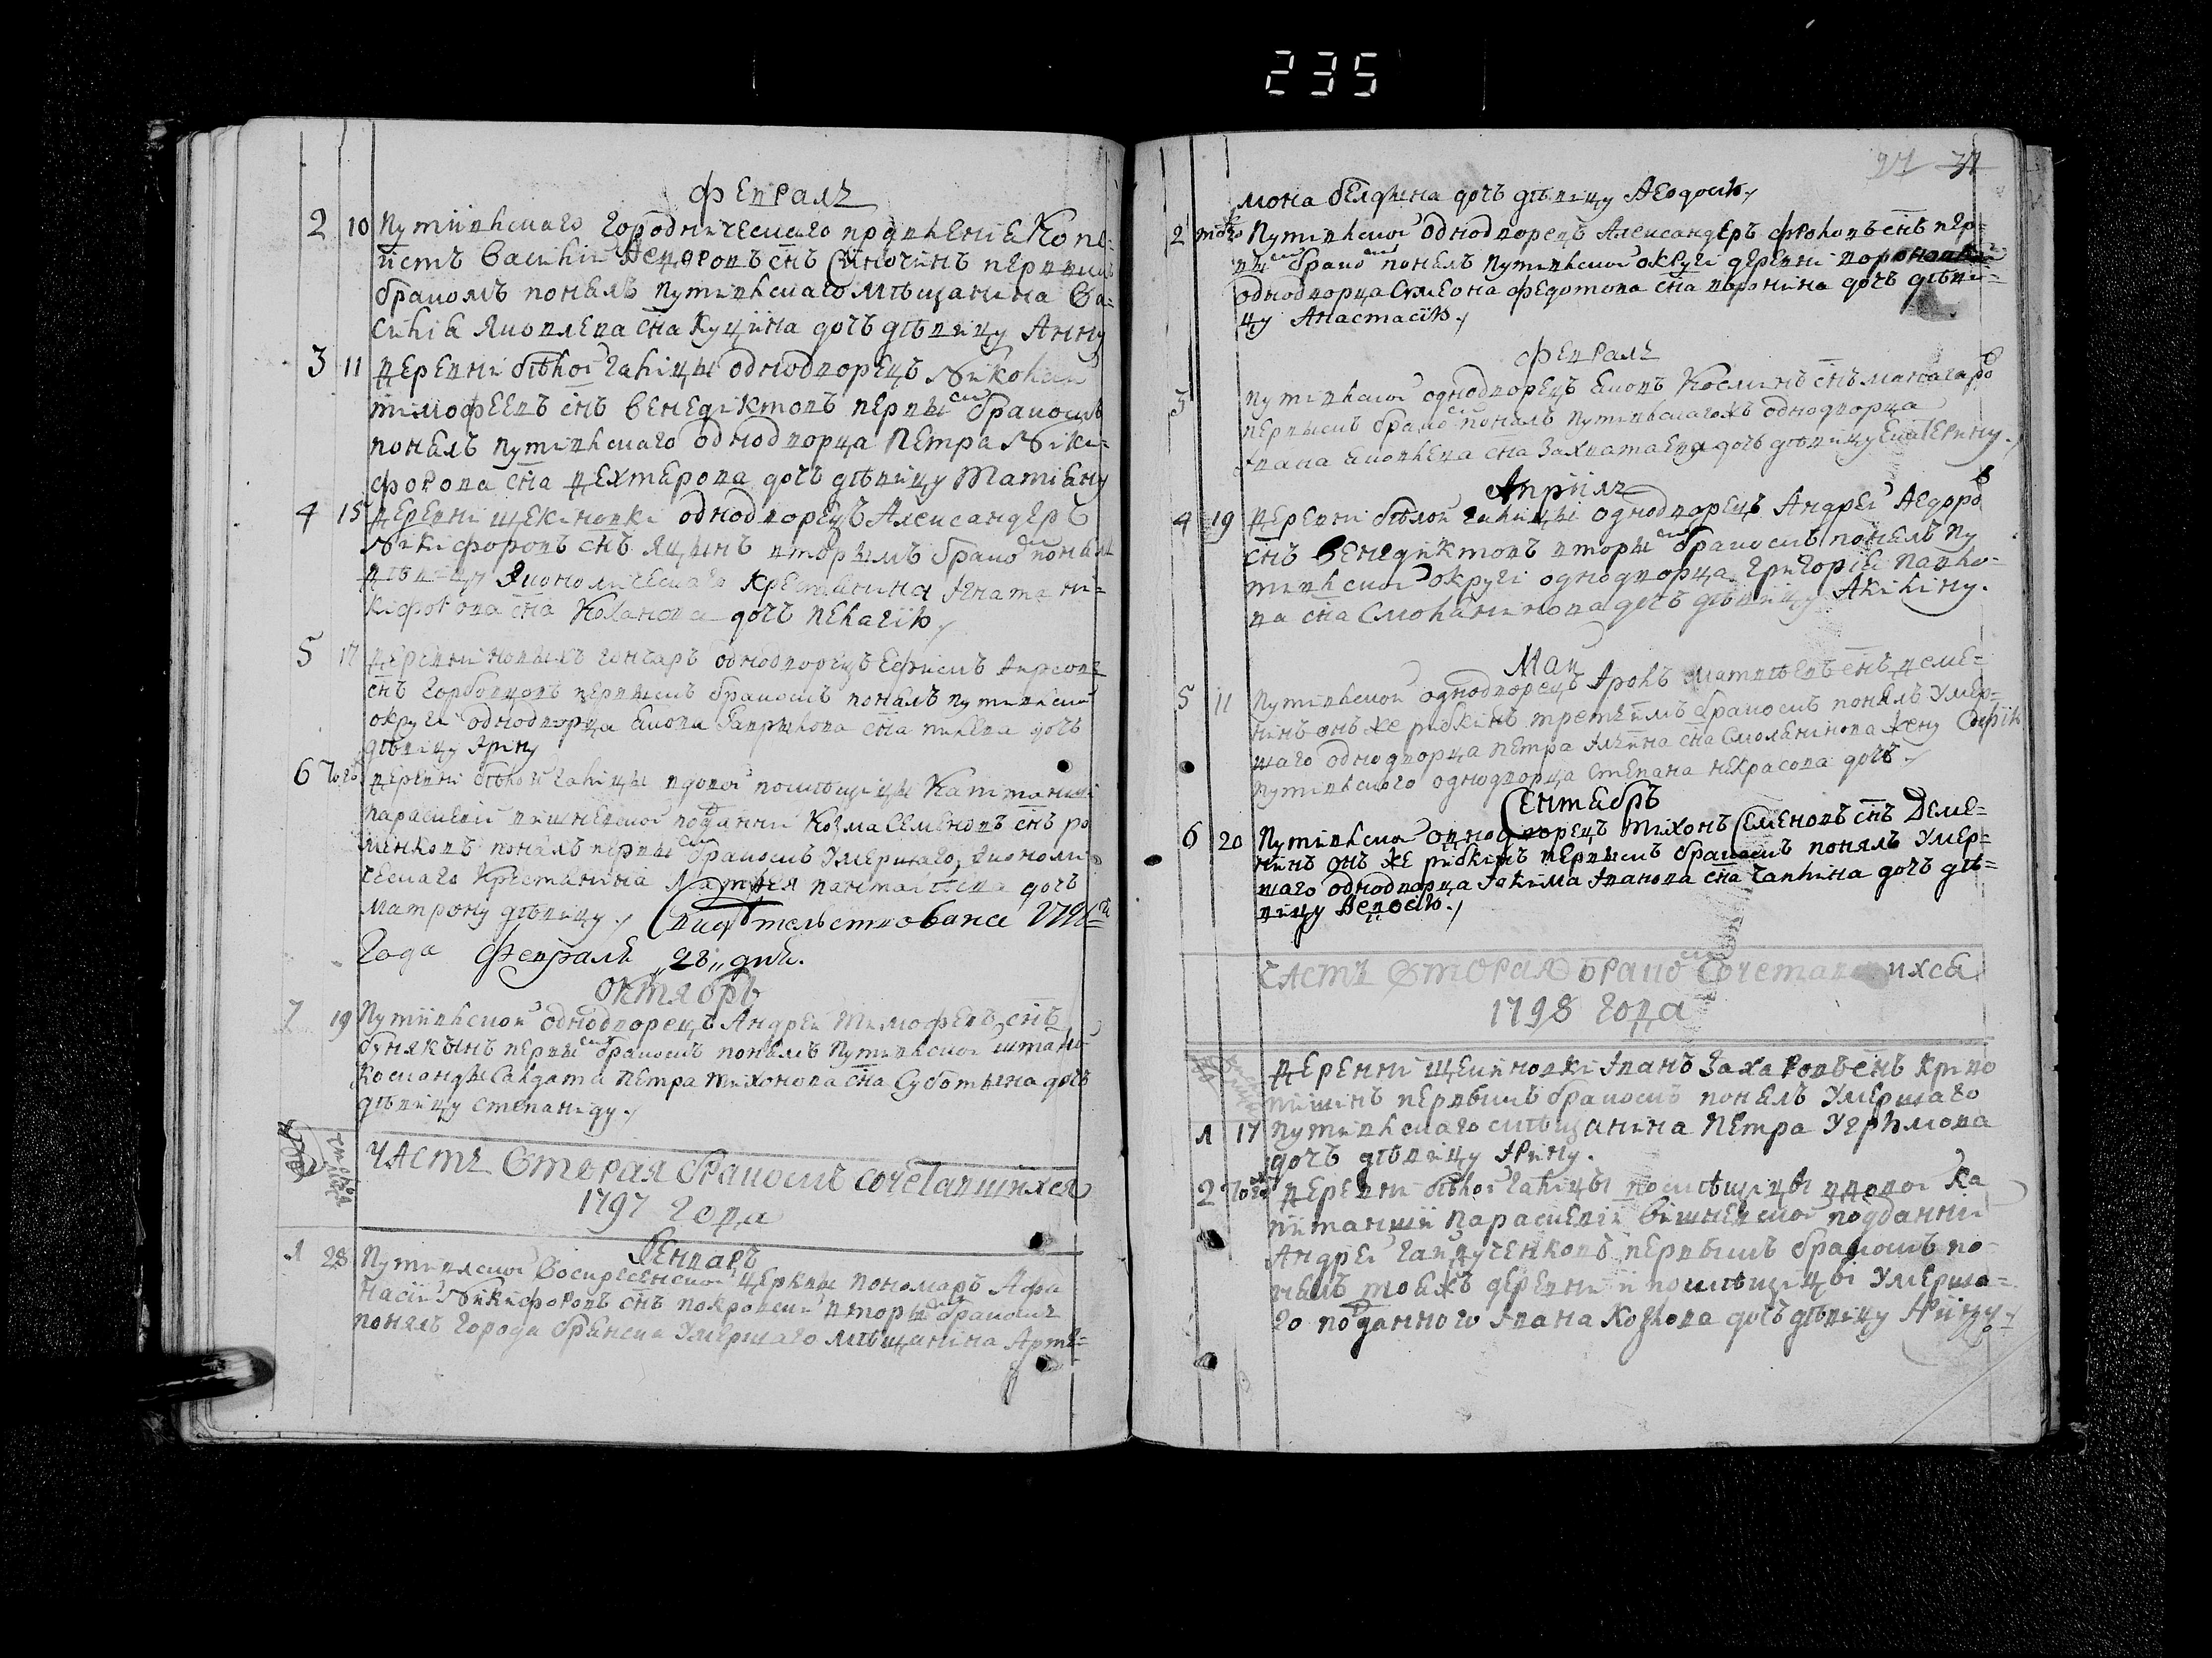 235
Февраль
2 10 Путивльскаго Городническаго правленія Копе-
истъ Василій Ѳедоровъ снъ Синочинъ первымъ
бракомъ понялъ путивльскаго мѣщанина Ва-
силія Яковлева сна Куцина дочь дѣвицу Анну
3 11 Деревни бѣлой галицы однодворецъ Николай
тимофеевъ снъ Венедіктовъ первымъ бракомъ
понялъ путивльскаго однодворца Петра Ники-
форова сна Дехтерова дочь дѣвицу Татіану
4 15 Деревни щекіновки однодворецъ Александеръ
Никіфоровъ снъ Яцынъ вторымъ бракомъ понялъ
дѣвицу Экономическаго крестянина Ігната ни-
кіфорова сна Коханова дочь пелагію
5 17 Деревни новыхъ гончаръ однодворецъ Ефимъ
снъ Горбовцовъ первымъ бракомъ понялъ путивльской
округи однодворца Якова Гаврилова сна дочь
дѣвицу Ірину
6 того Деревни бѣлой галицы вдовы помѣщицы Капитанши
параскевіи вишневской подданный Козма Семеновъ снъ ро
менковъ понялъ первымъ бракомъ умершаго экономи
ческаго крестянина дочь
матрону дѣвицу. Свидѣтельствована 1796
Года Февраля „28„ дня.
Октябрь
7 19 Путивльской однодворецъ Андрей Тимофеевъ снъ
бунякынъ первымъ бракомъ понялъ Путивльской штатной
команды Салдата Петра тихонова сна Суботына дочь
дѣвицу степаниду.
Часть Вторая бракомъ сочетавшихся
1797 Года
Генварь
1 28 Путивлской Воскресенской церкви пономарь Афа
насій Никифоровъ снъ покровски вторымъ бракомъ
понялъ города брянска умершаго мѣщанина Арте-
27 37
мона белфина дочь дѣвицу Ѳеодосію.
2 Путивльской Однодворецъ Александеръ фроловъ снъ пер-
вымъ бракомъ понялъ путивльской округи деревни вороновки
однодворца Симеона федотова сна воронина дочь дѣви-
цу Анастасію.
Февраль
3 6 путивльской однодворецъ Яковъ Косминъ снъ
первымъ бракомъ понялъ путивльскагожъ однодворца
Івана Яковлева сна дочь дѣвицу Екатерину.
Апріиль
4 19 Деревни бѣлой галицы однодворецъ Андрей Ѳедоровъ
снъ Венедиктовъ вторымъ бракомъ понялъ пу
тивльской округи однодворца Григорія Павло-
ва сна Смолянинова дочь дѣвицу Акилину.
Май
5 11 Путивльской однодворецъ Фролъ матвѣевъ снъ деме-
нинъ онъ же рибкинъ третимъ бракомъ понялъ умер-
шаго однодворца Петра Ильина сна Смолянінова жену Софію
путивльскаго однодворца степана некрасова дочь.
Сентябрь
6 20 Путивльской однодворецъ тихонъ Семеновъ снъ Деме-
нинъ онъ же рибкинъ первымъ бракомъ понялъ умер-
шаго однодворца Іакима Іванова сна Чаплина дочь дѣ-
вицу Ѳедосію.
Часть Вторая бракомъ сочетавшихся
1798 Года
Деревни щекиновки Іванъ Захаровъ снъ криво
шинъ первымъ бракомъ понялъ умершаго
1 17 путивльскаго мѣщанина Петра Угрюмова
дочь дѣвицу Ірину.
2 того Деревни бѣлой галицы помѣщицы вдовы Ка
питанши Параскевіи Вишневской подданный
Андрей Гайдученковъ первымъ бракомъ по
нялъ тояжъ деревни и помѣщицы умерша-
го подданного Івана Козлова дочь дѣвицу Ірину.